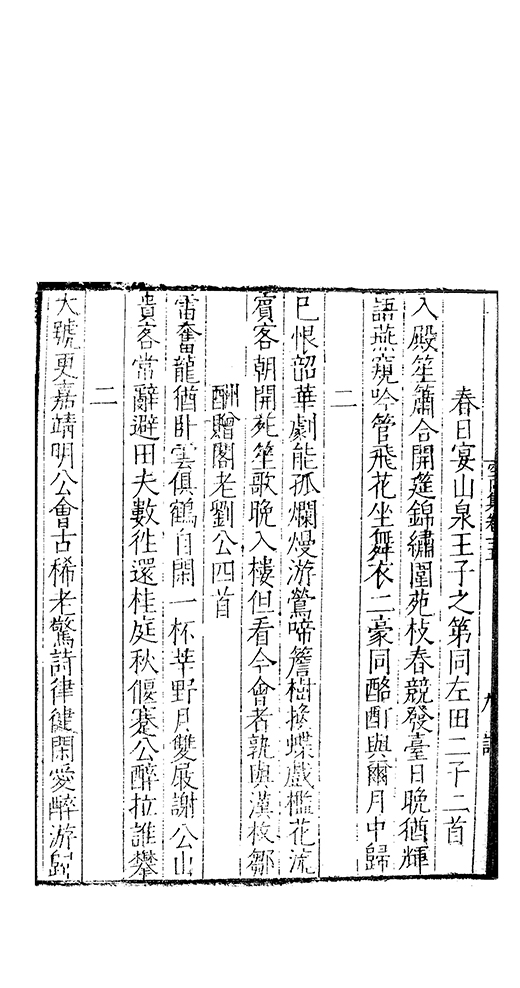 空同集卷三五 九 詩
春日宴山泉王子之第同左田二子二首
入殿笙簫合開筵錦繡圍苑枝春競發臺日晚猶輝
語燕窺吟管飛花坐舞衣二豪同酩酊與爾月中歸
二
已恨韶華劇能孤爛熳游鶯啼簷樹換蝶戲檻花流
賓客朝開㲚笙歌晚入樓但看今會者孰與漢枚鄒
酬贈閣老劉公四首
雷奮龍猶卧雲俱鶴自閑一杯莘野月雙屐謝公山
貴客常辭避田夫數徃還桂庭秋偃蹇公醉拉誰攀
二
大號更嘉靖明公會古稀老驚詩律健閑愛醉游歸